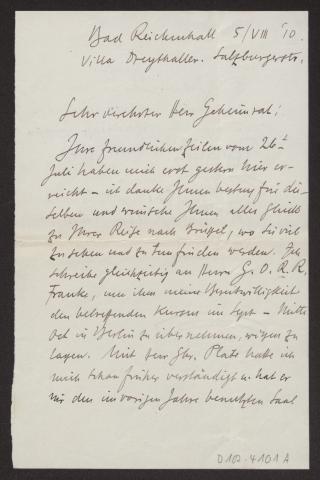 Bad Reichenhall 5/VIII '10.
Villa Dreythaller. Salzburgerstr.
Sehr verehrter Herr Geheimrat!
Ihre freundlichen Zeilen vom 26t
Juli haben mich erst gestern hier er-
reicht – ich danke Ihnen bestens für die-
selben und wünsche Ihnen alles Glück
zu Ihrer Reise nach Brüssel, wo Sie viel
zu sehen und zu tun finden werden. Ich
schreibe gleichzeitig an Herrn G. O. R. R.
Francke, um ihm meine Bereitwilligkeit
den betreffenden Kursus im Sept – Mitte
Oct in Berlin zu übernehmen, wissen zu
lassen. Mit Herr Plate hatte ich
mich schon früher verständigt u. hat er
mir den im vorigen Jahre benutzten Saal
D102-4101A